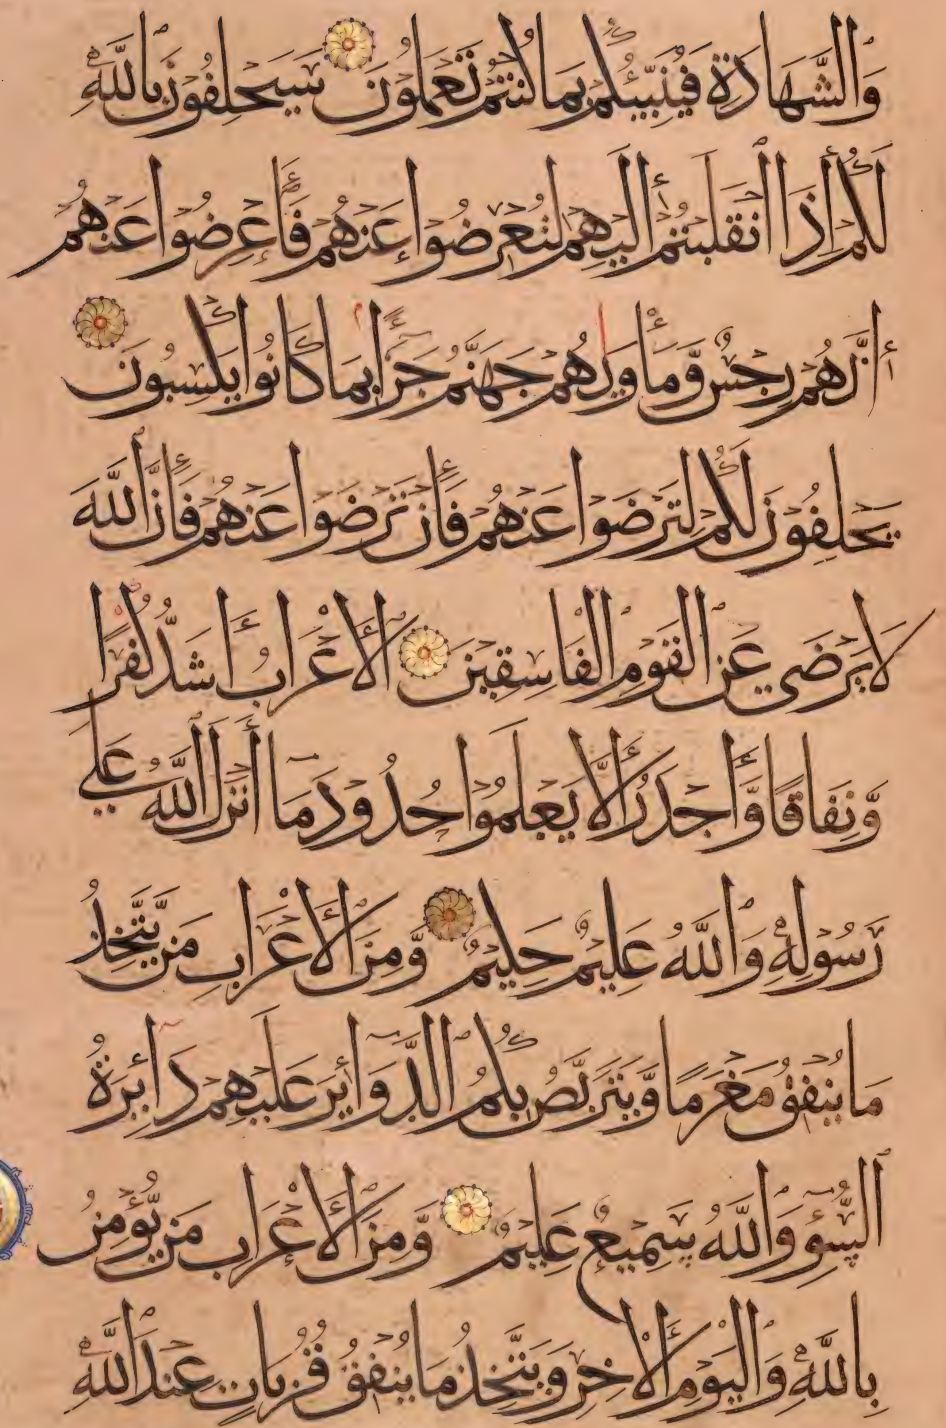 وَالشَّهَادَةِ فَيُنَبِّئُكُم بِمَا كُنتُمْ تَعْمَلُونَ سَيَحْلِفُونَ بِاللَّهِ
لَكُمْ إِذَا انقَلَبْتُمْ إِلَيْهِمْ لِتُعْرِضُوا عَنْهُمْ فَأَعْرِضُوا عَنْهُمْ
إِنَّهُمْ رِجْسٌ وَّمَأْوٰىهُمْ جَهَنَّمُ جَزَاءً بِمَا كَانُوا يَكْسِبُونَ
يَحْلِفُونَ لَكُمْ لِتَرْضَوْا عَنْهُمْ فَإِن تَرْضَوْا عَنْهُمْ فَإِنَّ اللَّهَ
لَا يَرْضَى عَنِ الْقَوْمِ الْفَاسِقِينَ الْأَعْرَابُ أَشَدُّ كُفْرًا
وَّنِفَاقًا وَّأَجْدَرُ أَلَّا يَعْلَمُوا حُدُودَ مَا أَنزَلَ اللَّهُ عَلَى
رَسُولِهِ وَاللَّهُ عَلِيمٌ حَكِيمٌ وَّمِنَ الْأَعْرَابِ مَن يَّتَّخِذُ
مَا يُنفِقُ مَغْرَمًا وَّيَتَرَبَّصُ بِكُمُ الدَّوَائِرَ عَلَيْهِمْ دَائِرَةُ
السَّوْءِ وَاللَّهُ سَمِيعٌ عَلِيمٌ وَّمِنَ الْأَعْرَابِ مَن يُّؤْمِنُ
بِاللَّهِ وَالْيَوْمِ الْآخِرِ وَيَتَّخِذُ مَا يُنفِقُ قُرُبَاتٍ عِندَ اللَّهِ